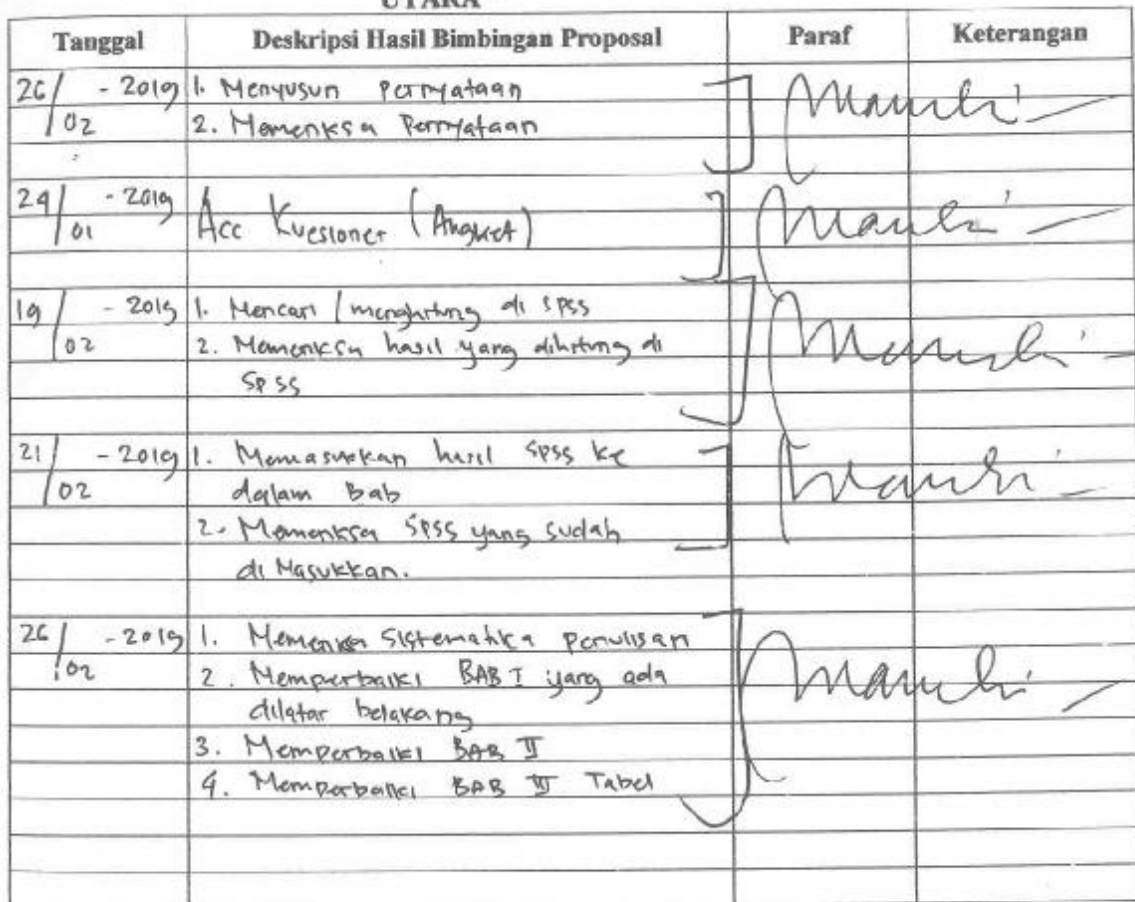 UTARA
Tanggal Deskripsi Hasil Bimbingan Proposal Paraf Keterangan
26/02 - 2019 1. Menyusun Pernyataan
2. Memeriksa Pernyataan
24/01 - 2019 Acc Kuesioner (Angket)
19/02 - 2019 1. Mencari / menghitung di SPSS
2. Memeriksa hasil yang dihitung di
SPSS
21/02 - 2019 1. Memasukkan hasil SPSS ke
dalam Bab
2. Memeriksa SPSS yang sudah
di Masukkan.
26/02 - 2019 1. Memeriksa Sistematika penulisan
2. Memperbaiki BAB I yang ada
dilatar belakang
3. Memperbaiki BAB II
4. Memperbaiki BAB Tabel